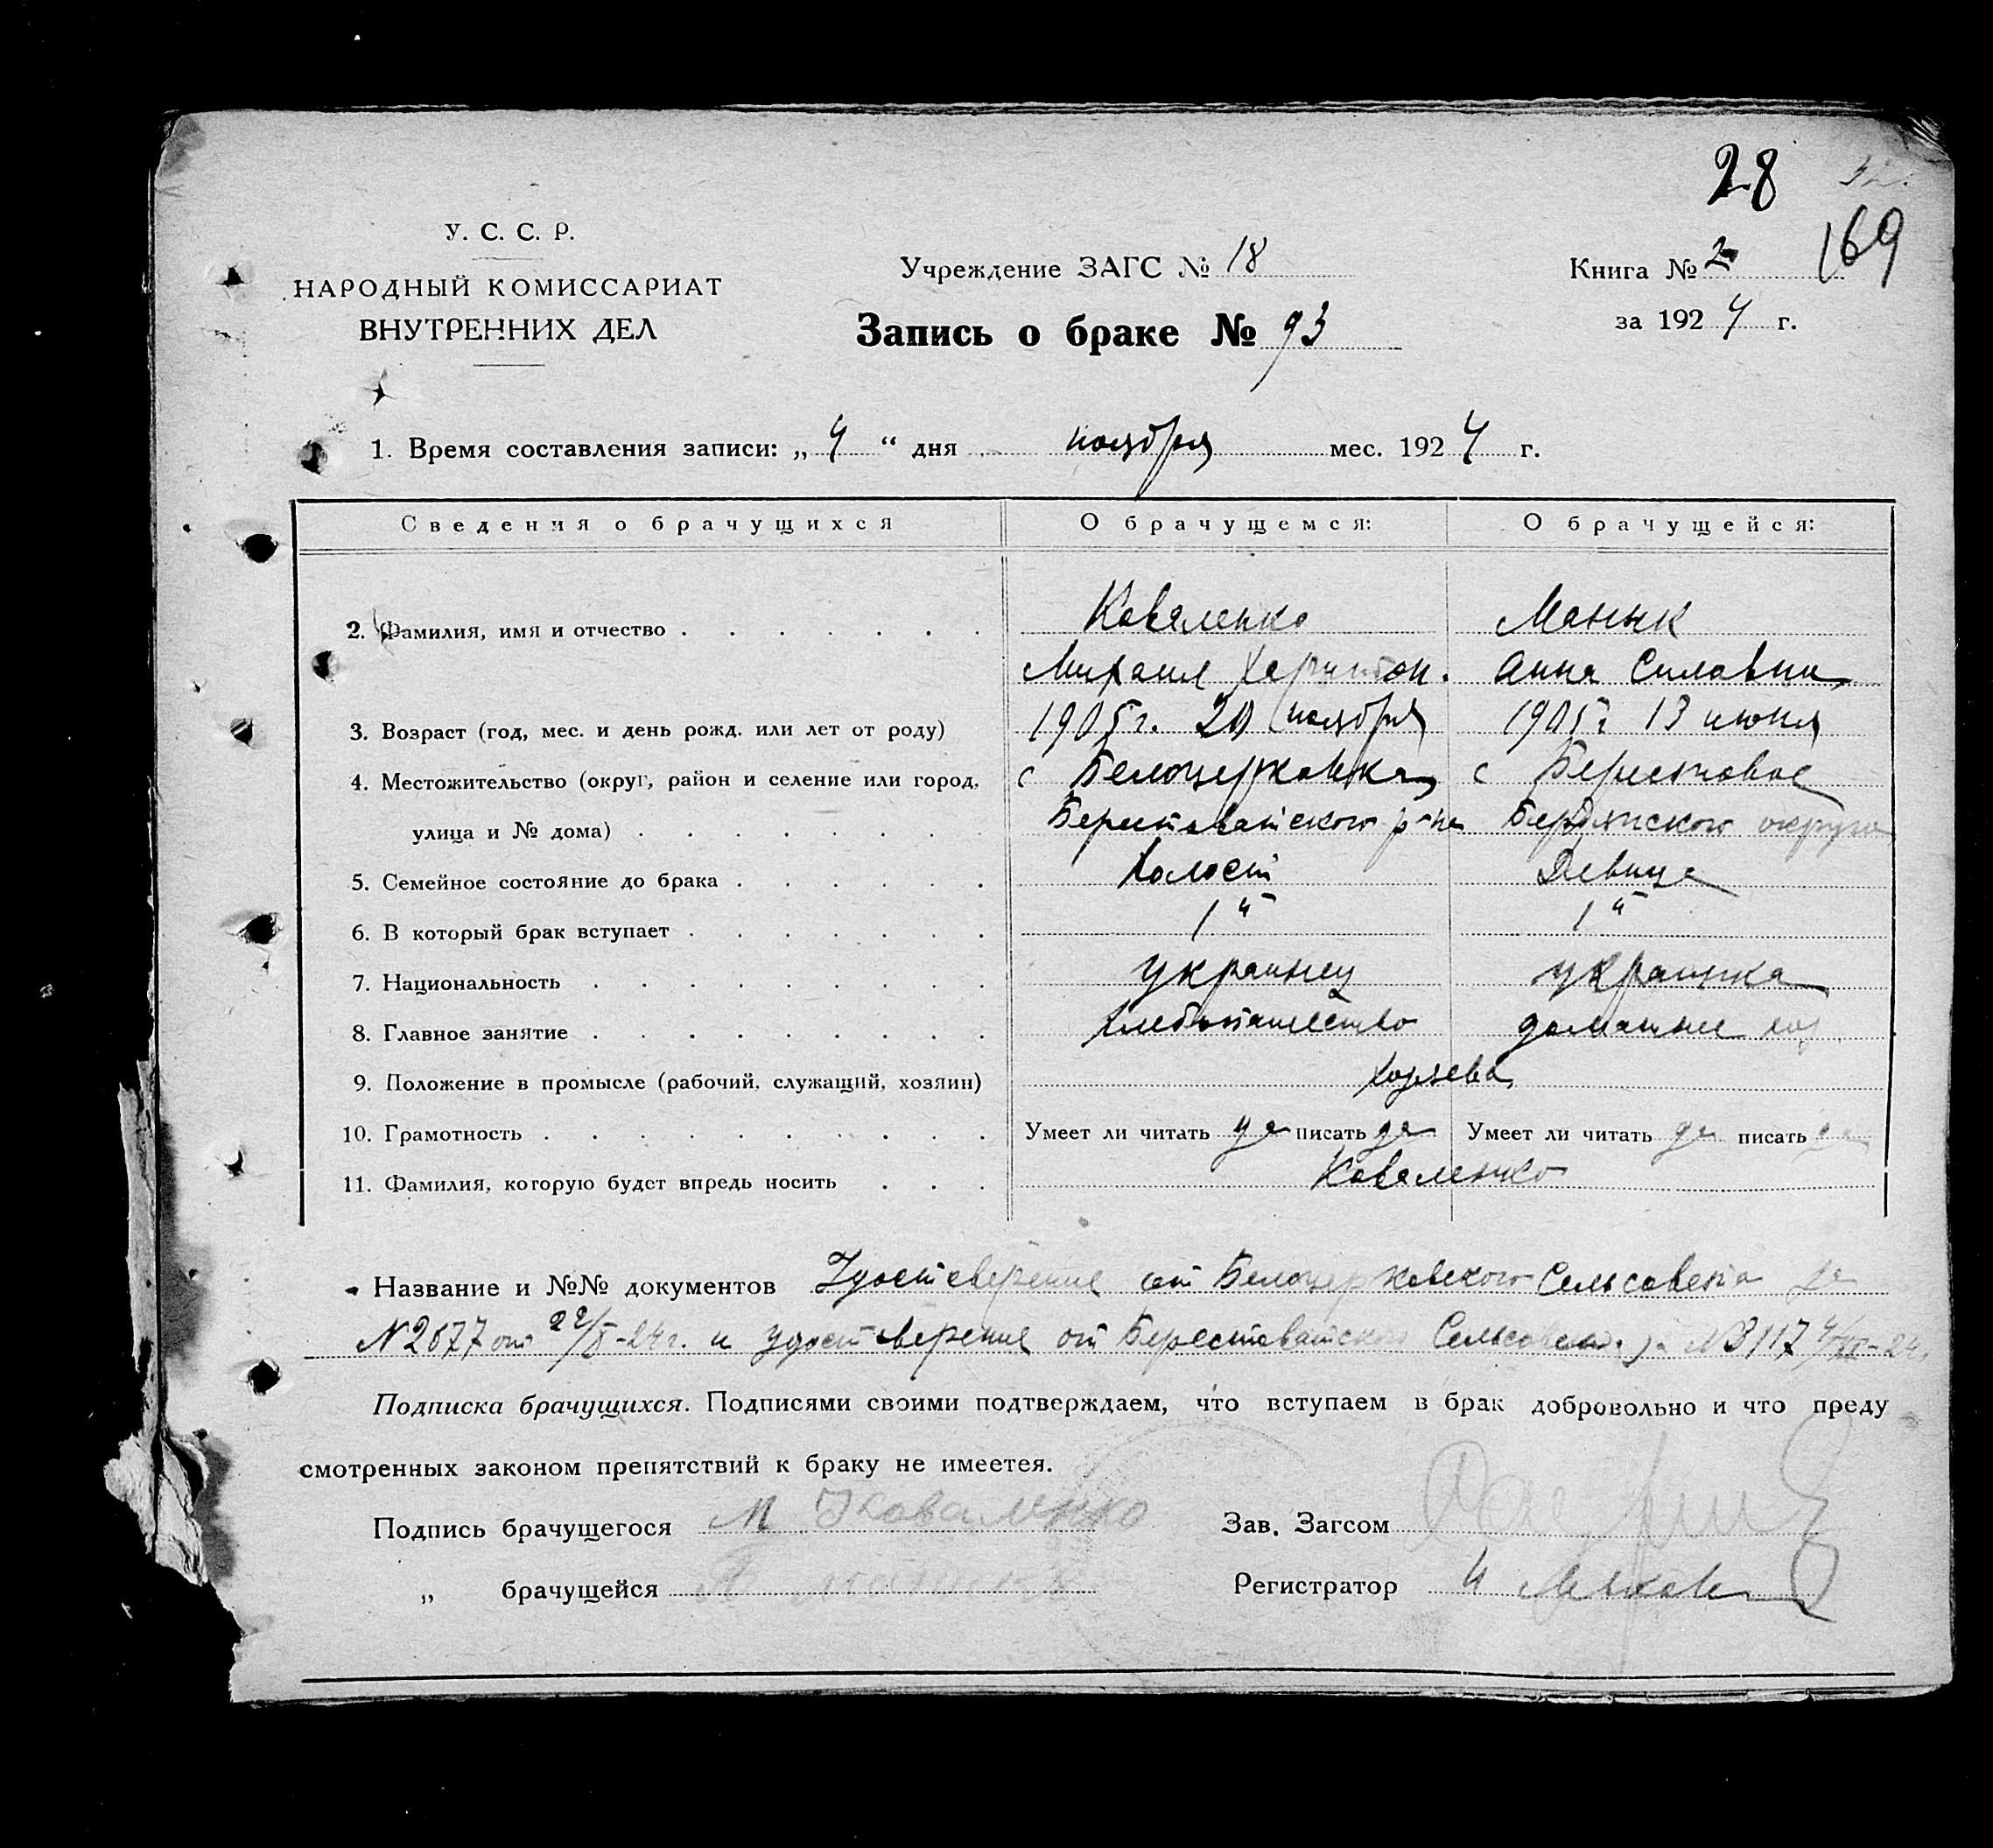 28
169
У. С. С. Р.
НАРОДНЫЙ КОМИССАРИАТ
ВНУТРЕННИХ ДЕЛ
Учреждение ЗАГС № 18
Книга № 2
Запись о браке № 93
за 1924 г.
1. Время составления записи: „4“ дня ноября мес. 1924 г.
Сведения о брачущихся О брачущемся: О брачущейся:
2. Фамилия, имя и отчество Коваленко
Михаил Харитон. Анна Силавна
3. Возраст (год, мес. и день рожд. или лет от роду) 1905 г. 20 ноября 1905 г 13 июня
4. Местожительство (округ, район и селение или город, с Белоцерковка с Берестовое
улица и № дома) Берестоватского р-на Бердянского округа
5. Семейное состояние до брака Холост Девица
6. В который брак вступает 1й 1й
7. Национальность украинец украинка
8. Главное занятие хлебопашество домашнее хоз
9. Положение в промысле (рабочий, служащий, хозяин) хозяева
10. Грамотность Умеет ли читать да писать да Умеет ли читать да писать да
11. Фамилия, которую будет впредь носить Коваленко
Название и №№ документов Удостоверение от Белоцерковского Сельсовета за
№ 2677 от 22/X-24 г. и удостоверение от Берестоватского Сельсовета за № 3117 4/XI-24
Подписка брачущихся. Подписями своими подтверждаем, что вступаем в брак добровольно и что преду
смотренных законом препятствий к браку не имеетея.
Подпись брачущегося М Коваленко Зав. Загсом
„ брачущейся Регистратор